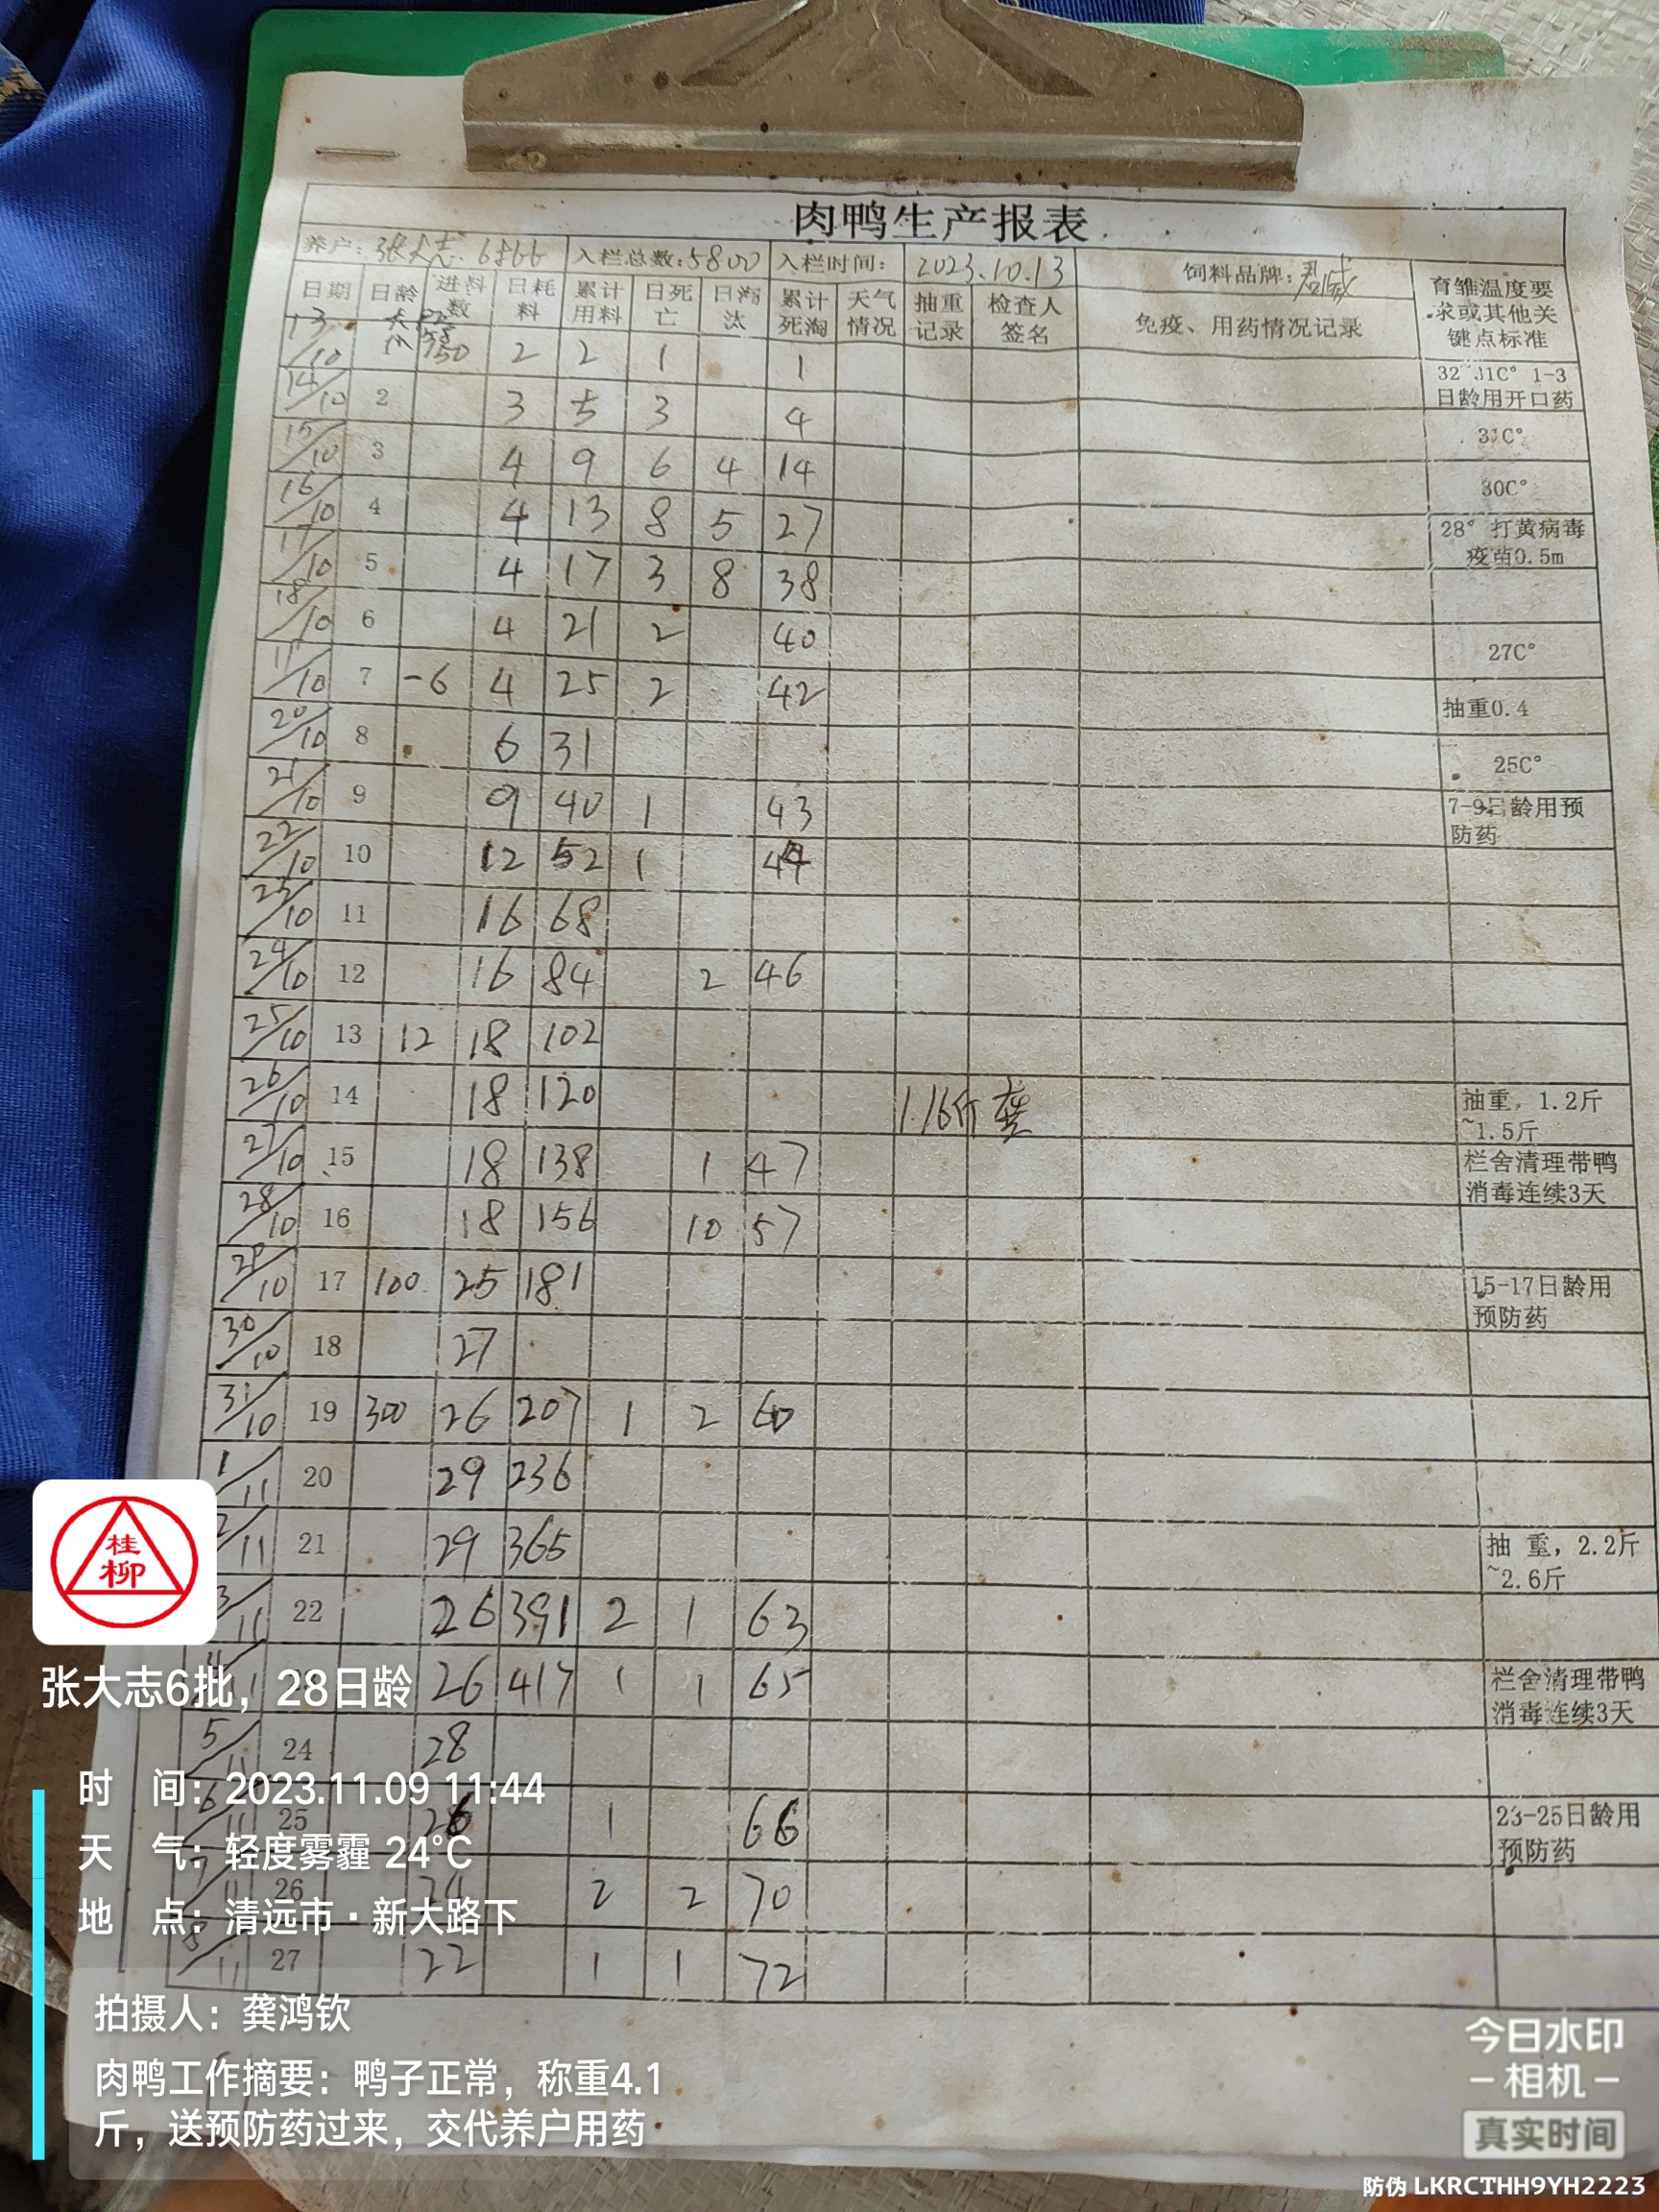 肉鸭生产报表
养户: 张大志 入栏总数:5800 入栏时间: 2023.10.13 饲料品牌: 育雏温度要求或其他关键点标准
日期 日龄 进料数 日耗料 累计用料 日死亡 日淘汰 累计死淘 天气情况 抽重记录 检查人签名 免疫、用药情况记录
13/10 150 2 2 1 1 32~31C° 1-3日龄用开口药
14/10 2 3 5 3 4 31C°
15/10 3 4 9 6 4 14 30C°
16/10 4 4 13 8 5 27 28° 打黄病毒疫苗0.5m
17/10 5 4 17 3 8 38
18/10 6 4 21 2 40 27C°
/10 7 -6 4 25 2 42 抽重0.4
20/10 8 6 31 25C°
21/10 9 9 40 1 43 7-9日龄用预防药
22/10 10 12 52 1 44
23/10 11 16 68
24/10 12 16 84 2 46
25/10 13 12 18 102
26/10 14 18 120 1.16斤 龚 抽重，1.2斤~1.5斤
27/10 15 18 138 1 47 栏舍清理带鸭消毒连续3天
28/10 16 18 156 10 57
29/10 17 100 25 181 15-17日龄用预防药
30/10 18 27
31/10 19 300 26 207 1 2 60
1/11 20 29 236
2/11 21 29 365 抽 重，2.2斤~2.6斤
3/11 22 26 391 2 1 63
26 417 1 1 65 栏舍清理带鸭消毒连续3天
5/11 24 28
6/11 25 26 1 66 23-25日龄用预防药
7/11 26 24 2 2 70
8/11 27 22 1 1 72
桂
柳
张大志6批，28日龄
时 间：2023.11.09 11:44
天 气：轻度雾霾 24℃
地 点：清远市·新大路下
拍摄人：龚鸿钦
肉鸭工作摘要：鸭子正常，称重4.1
斤，送预防药过来，交代养户用药
今日水印
相机
真实时间
防伪 LKRCTHH9YH2223